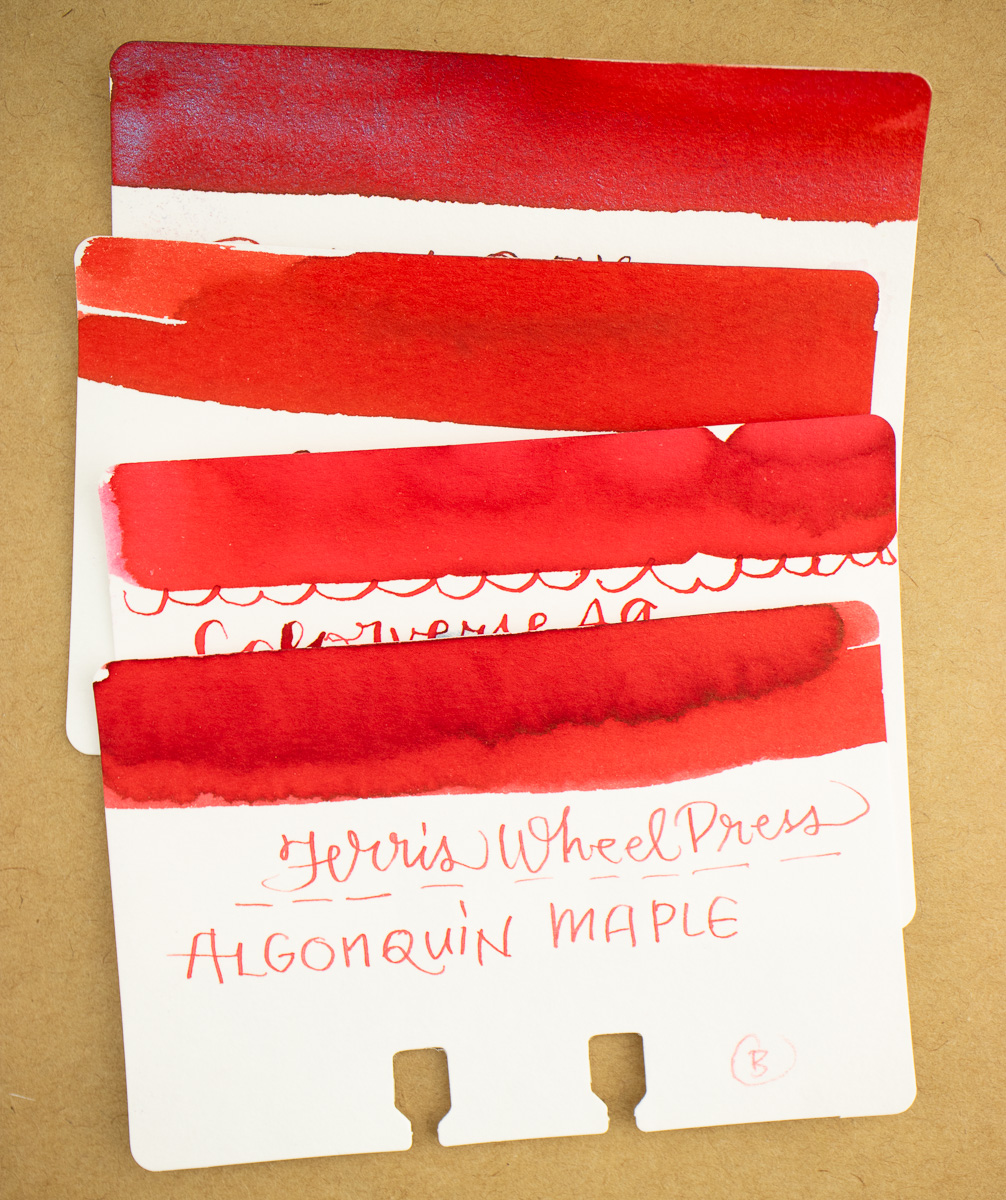 Colorverse Ag
Ferris Wheel Press
ALGONQUIN MAPLE
B